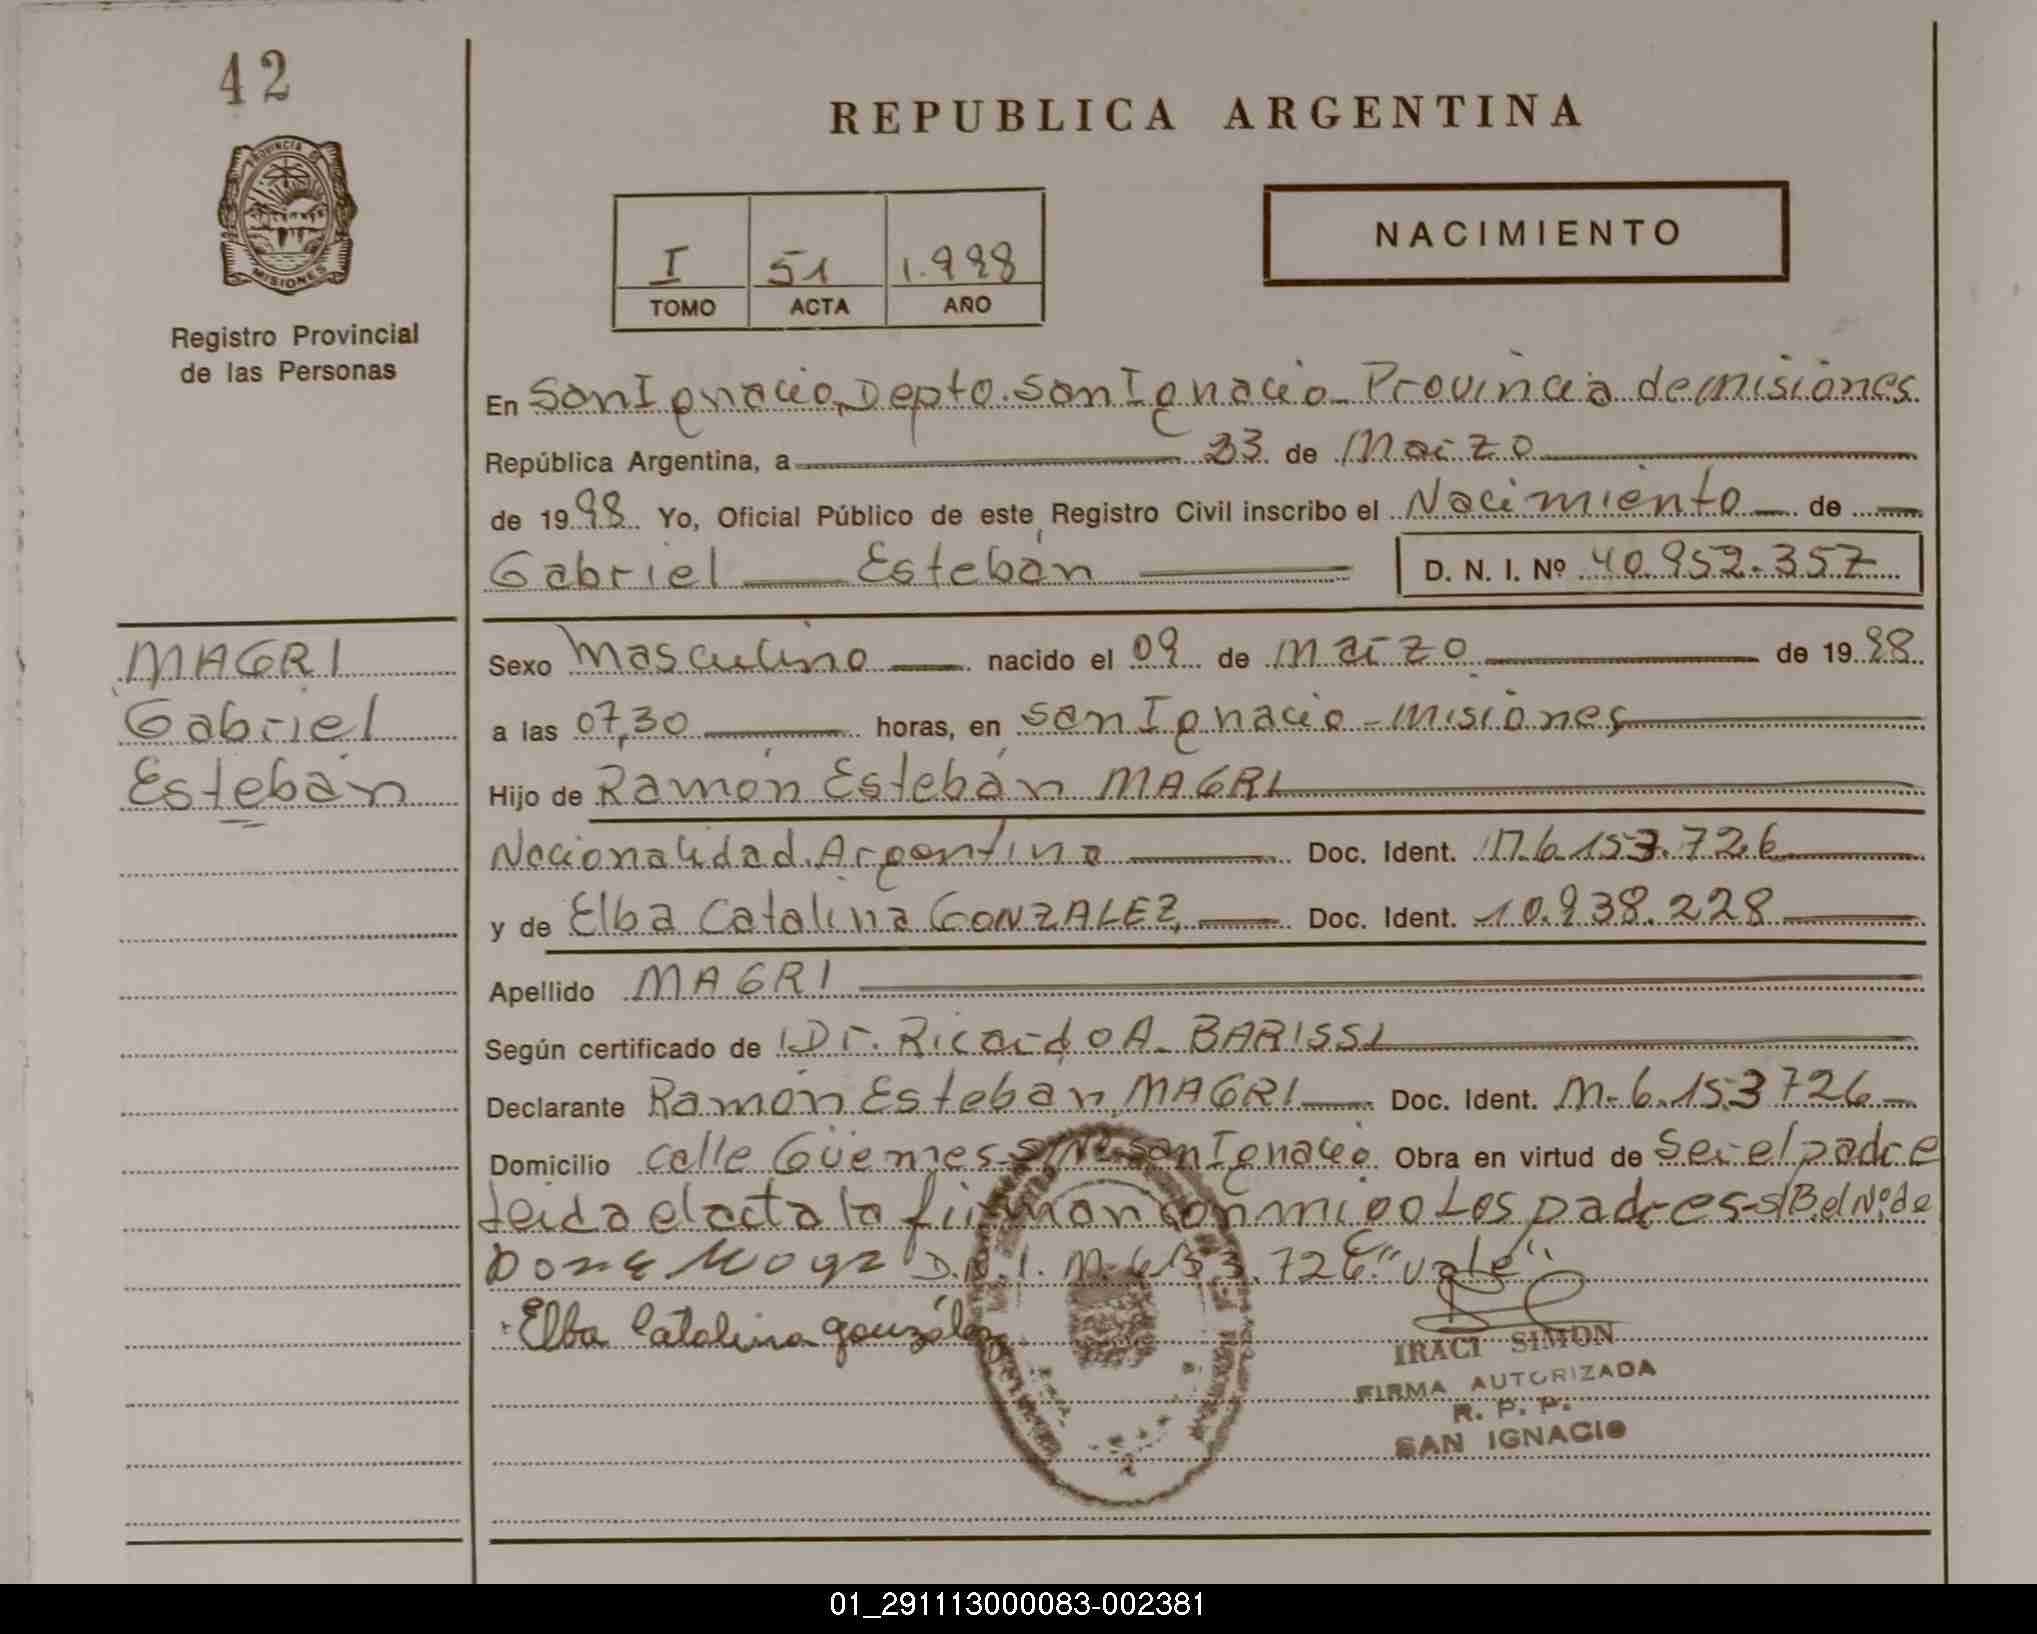 42
REPUBLICA ARGENTINA
PROVINCIA DE
MISIONES
Registro Provincial
de las Personas
I 51 1.998
TOMO ACTA AÑO
NACIMIENTO
En San Ignacio, Depto. San Ignacio - Provincia de misiones.
República Argentina, a 23 de Marzo
de 1998 Yo, Oficial Público de este Registro Civil inscribo el Nacimiento de
Gabriel Estebán D. N. I. Nº 40.952.357
MAGRI
Gabriel
Estebán
Sexo Masculino nacido el 09 de marzo de 1998
a las 07,30 horas, en San Ignacio - misiones
Hijo de Ramón Estebán MAGRI
Nacionalidad Argentina Doc. Ident. M.6.153.726
y de Elba Catalina GONZALEZ Doc. Ident. 10.938.228
Apellido MAGRI
Según certificado de Dr. Ricardo A. BARISSI
Declarante Ramón Esteban MAGRI Doc. Ident. M-6.153726
Domicilio calle Güemes S/Nº San Ignacio Obra en virtud de Ser el padre
Leida el acta la firman conmigo Los padres - S/B. el Nº de
D.N.I. M-6153.726 "vale".
Elba Catalina González
IRACI SIMON
FIRMA AUTORIZADA
R. P. P.
SAN IGNACIO
01_291113000083-002381